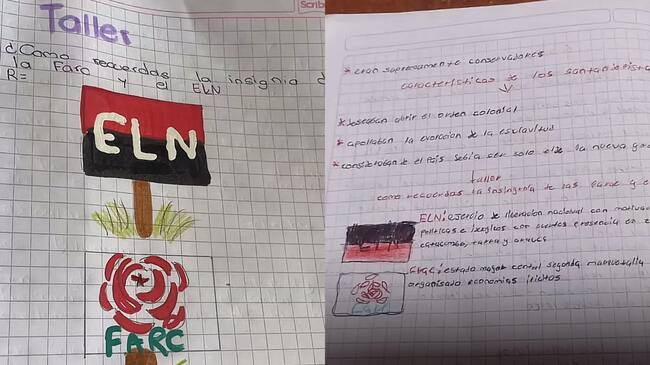 Scrib
Taller
¿Como recuerdas la insignia d
la Farc y el ELN
R=
ELN
FARC
* eran supremamente conservadores
caracteristicas de los santanderista
* deseaban abrir el orden colonial
* apollaban la evolucion de la esclavitud
* consideraban de el pais debia ser solo el de la nueva gra
taller
como recuerdas la insignia de las farc y e
ELN: ejercio de liberacion nacional con motivac
politicas e
con fuertes presencia en e
catacumbo, y arauca
ELN
FARC: estado mayor central segunda marquetalia
organisado economias ilicitas